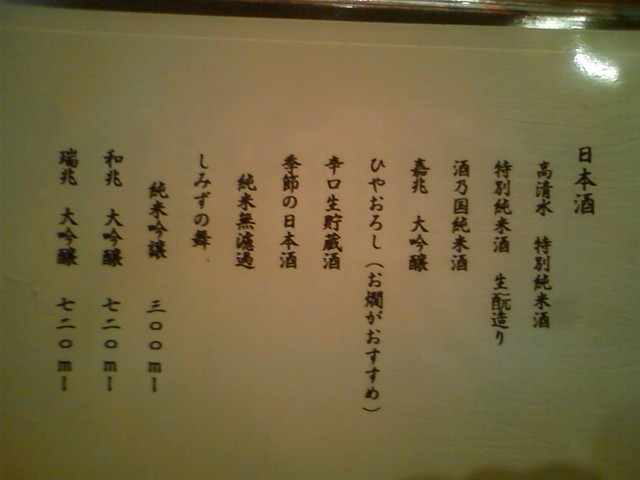 日本酒
高清水 特別純米酒
特別純米酒 生酛造り
酒乃国純米酒
嘉兆 大吟醸
ひやおろし（お燗がおすすめ）
辛口生貯蔵酒
季節の日本酒
純米無濾過
しみずの舞
純米吟醸 三〇〇ml
和兆 大吟醸 七二〇ml
瑞兆 大吟醸 七二〇ml